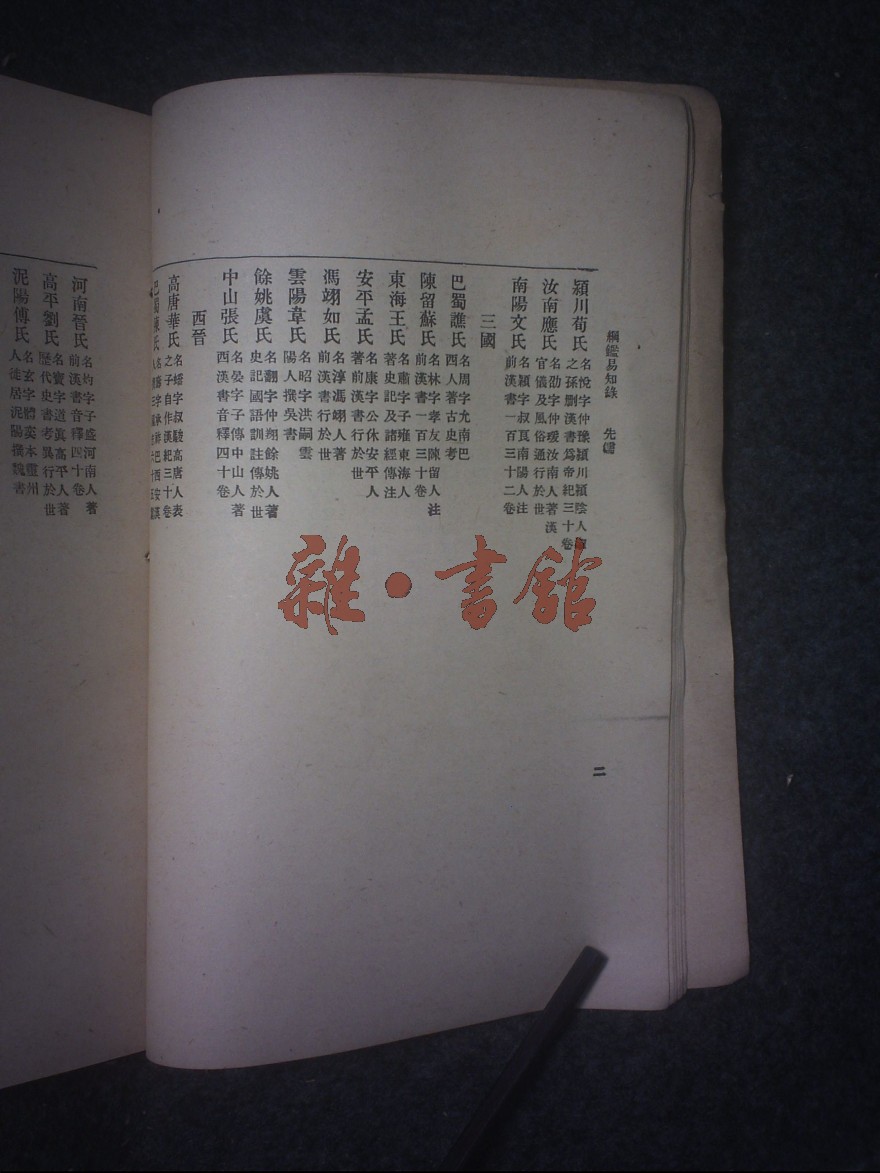 綱鑑易知錄 先儒
二
潁川荀氏 名悅字仲豫潁川潁陰人
之孫删漢書爲帝紀三十卷
汝南應氏 名劭字仲瑗汝南人著漢
官儀及風俗通行於世
南陽文氏 名穎字叔良南陽人注
前漢書一百三十二卷
三國
巴蜀譙氏 名周字允南巴
西人著古史考
陳留蘇氏 名林字孝友陳留人注
前漢書一百三十卷
東海王氏 名肅字子雍東海人
著史記及諸經傳注
安平孟氏 名康字公休安平人
著前漢書行於世
馮翊如氏 名淳馮翊人著
前漢書行於世
雲陽韋氏 名昭字洪嗣雲
陽人撰吳書
餘姚虞氏 名翻字仲翔餘姚人著
史記國語訓註傳於世
中山張氏 名晏字子傳中山人著
西漢書音釋四十卷
西晉
高唐華氏 名嶠字叔駿高唐人表
之子自作漢紀三十卷
巴蜀陳氏
河南晉氏 名灼字子盛河南人著
前漢書音釋四十卷
高平劉氏 名寶字道眞高平人著
歷代史書考異行於世
泥陽傅氏 名玄字體奕本靈州
人徙居泥陽撰魏書
雜·書館